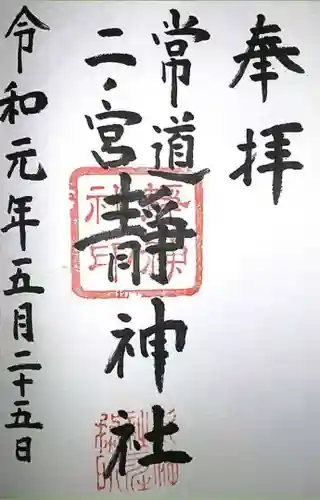 奉拝
常道
二ノ宮
靜神社
令和元年五月二十五日